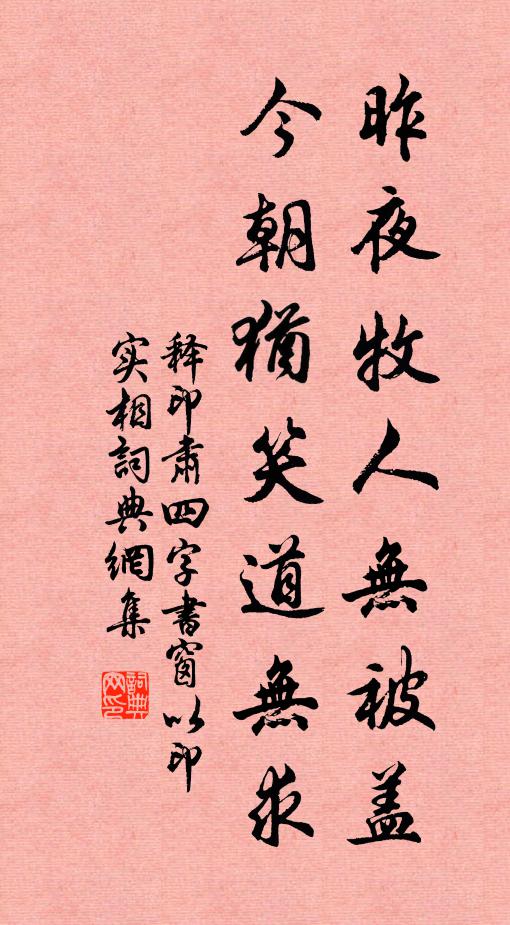 昨夜牧人無被盖
今朝猶笑道無求
释印肃四字書窗以印
实相詞典網集
詞典網印